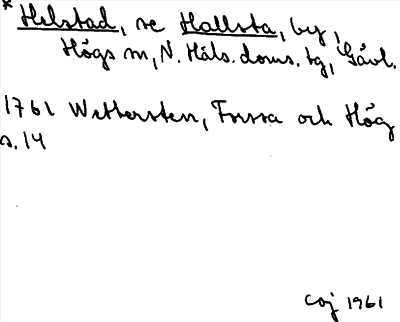 * Helstad, se Hallsta, by,
Högs sn, N. Häls. doms. tg, Gävl.
1761 Wettersten, Forssa och Hög
s. 14
Coj 1961